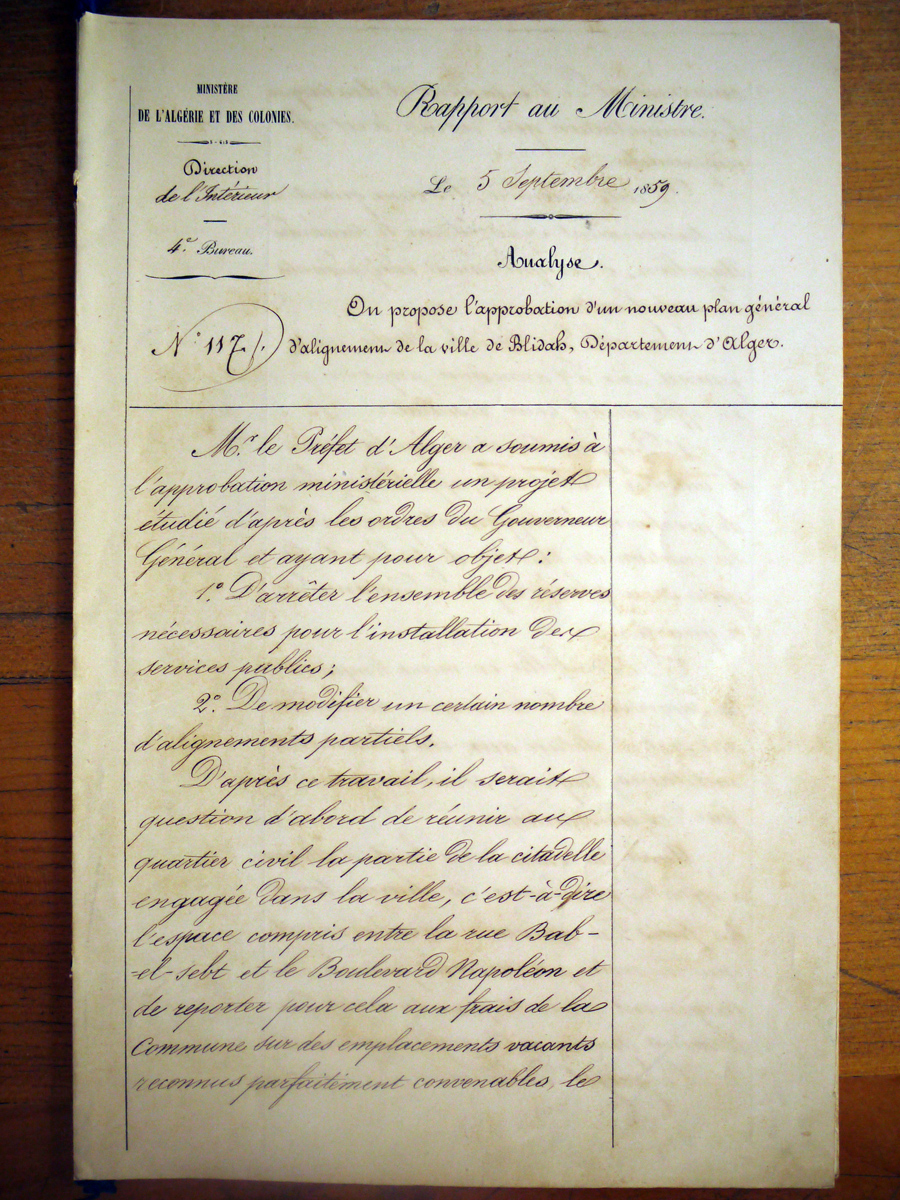 MINISTÈRE
DE L'ALGÉRIE ET DES COLONIES.
Direction
de l'Intérieur
4e. Bureau.
N° 117
Rapport au Ministre.
Le 5 Septembre 1859.
Analyse.
On propose l'approbation d'un nouveau plan général
d'alignement de la ville de Blidah, Département d'Alger.
Mr. le Préfet d'Alger a soumis à
l'approbation ministérielle un projet
étudié d'après les ordres du Gouverneur
Général et ayant pour objet :
1° D'arrêter l'ensemble des réserves
nécessaires pour l'installation des
services publics ;
2° De modifier un certain nombre
d'alignements partiels.
D'après ce travail, il serait
question d'abord de réunir au
quartier civil la partie de la citadelle
engagée dans la ville, c'est-à-dire
l'espace compris entre la rue Bab-
-el-Sebt et le Boulevard Napoléon et
de reporter pour cela aux frais de la
Commune sur des emplacements vacants
reconnus parfaitement convenables, le